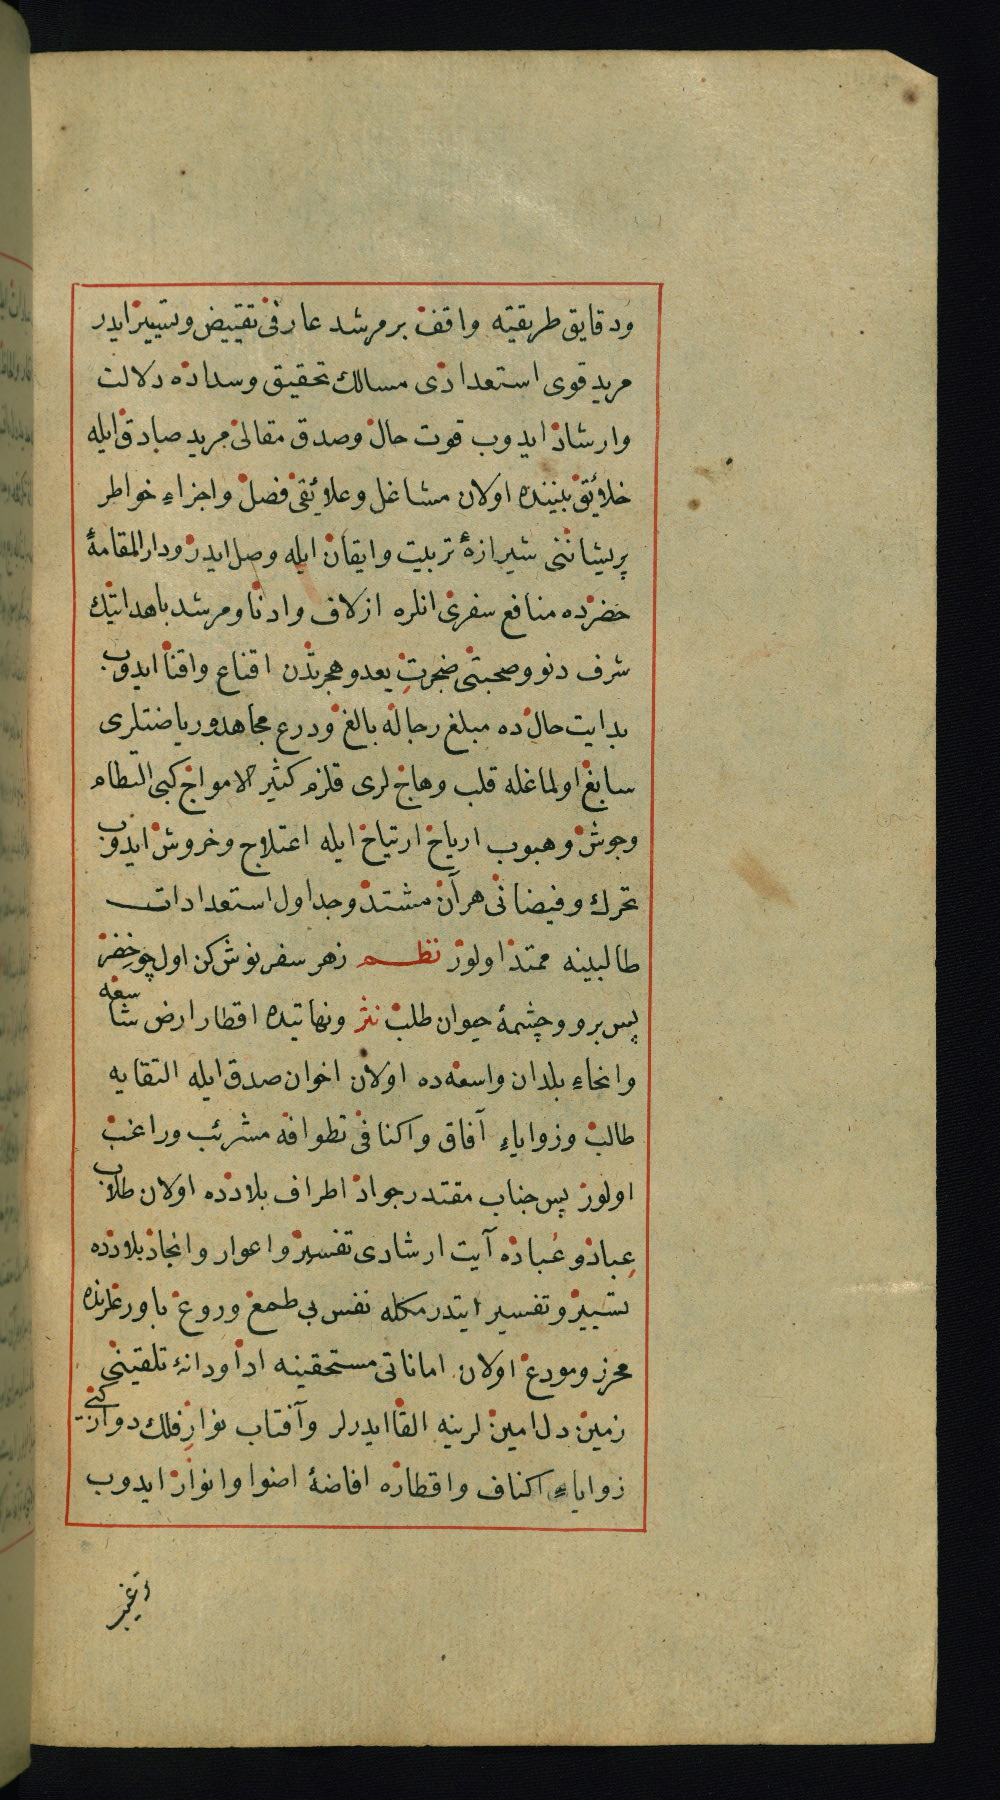 ودقایق طریقیته واقف بر مرشد عارفی تقییض وتسییر ایدر
مرید قوی استعدادی مسالك تحقیق وسداده دلالت
وارشاد ایدوب قوت حال وصدق مقالی مرید صادق ایله
خلائق بیننده اولان مشاغل وعلائقی فصل واجزاء خواطر
پریشاننی شیرازهٔ تربیت وایقان ایله وصل ایدر ودار المقامهٔ
حضرده منافع سفری انلره ازلاف وادنا ومرشد باهداتیك
شرف دنو وصحبتی ضجرت بعد وهجرتدن اقناع واقنا ایدوب
بدایت حال ده مبلغ رجاله بالغ ودرع مجاهد وریاضتلری
سابغ اولماغله قلب وهاج لری قلزم كثیر الامواج كبی التطام
وجوش وهبوب اریاح ارتیاح ایله اعتلاج وخروش ایدوب
تحرك وفیضانی هر آن مشتد وجداول استعدادات
طالبینه ممتد اولور نظم زهر سفر نوش كن اول چو خضر
پس برو وچشمهٔ حیوان طلب نثر ونهایتده اقطار ارض شاسعه
وانحاء بلدان واسعه ده اولان اخوان صدق ایله التقایه
طالب وزوایاء آفاق واكنافی تطوافه مشرئب وراغب
اولور پس جناب مقتدر جواد اطراف بلادده اولان طلاب
عباد وعباده آیت ارشادی تفسیر واغوار وانجاد بلادده
تسییر وتفسیر ایتدرمكله نفس بی طمع وروع باورعلرنده
محرز ومودع اولان اماناتی مستحقینه ادا ودانهٔ تلقینی
زمین دل امین لرینه القا ایدرلر وآفتاب نوار فلك دوار كبی
زوایاء اكناف واقطاره افاضهٔ اضوا وانوار ایدوب
ترغیب